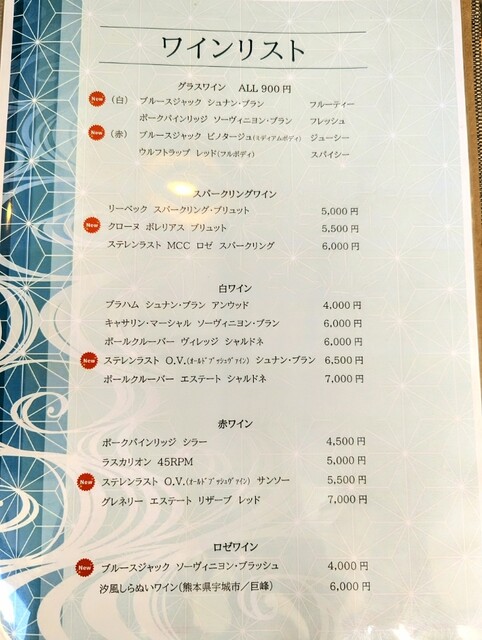 ワインリスト
グラスワイン ALL 900円
New (白) ブルースジャック シュナン・ブラン フルーティー
ポークパインリッジ ソーヴィニヨン・ブラン フレッシュ
New (赤) ブルースジャック ピノタージュ(ミディアムボディ) ジューシー
ウルフトラップ レッド(フルボディ) スパイシー
スパークリングワイン
リーベック スパークリング・ブリュット 5,000円
New クローヌ ボレリアス ブリュット 5,500円
ステレンラスト MCC ロゼ スパークリング 6,000円
白ワイン
ブラハム シュナン・ブラン アンウッド 4,000円
キャサリン・マーシャル ソーヴィニヨン・ブラン 6,000円
ポールクルーバー ヴィレッジ シャルドネ 6,000円
New ステレンラスト O.V.(オールドブッシュヴァイン) シュナン・ブラン 6,500円
ポールクルーバー エステート シャルドネ 7,000円
赤ワイン
ポークパインリッジ シラー 4,500円
ラスカリオン 45RPM 5,000円
New ステレンラスト O.V.(オールドブッシュヴァイン) サンソー 5,500円
グレネリー エステート リザーブ レッド 7,000円
ロゼワイン
New ブルースジャック ソーヴィニヨン・ブラッシュ 4,000円
汐風しらぬいワイン(熊本県宇城市/巨峰) 6,000円